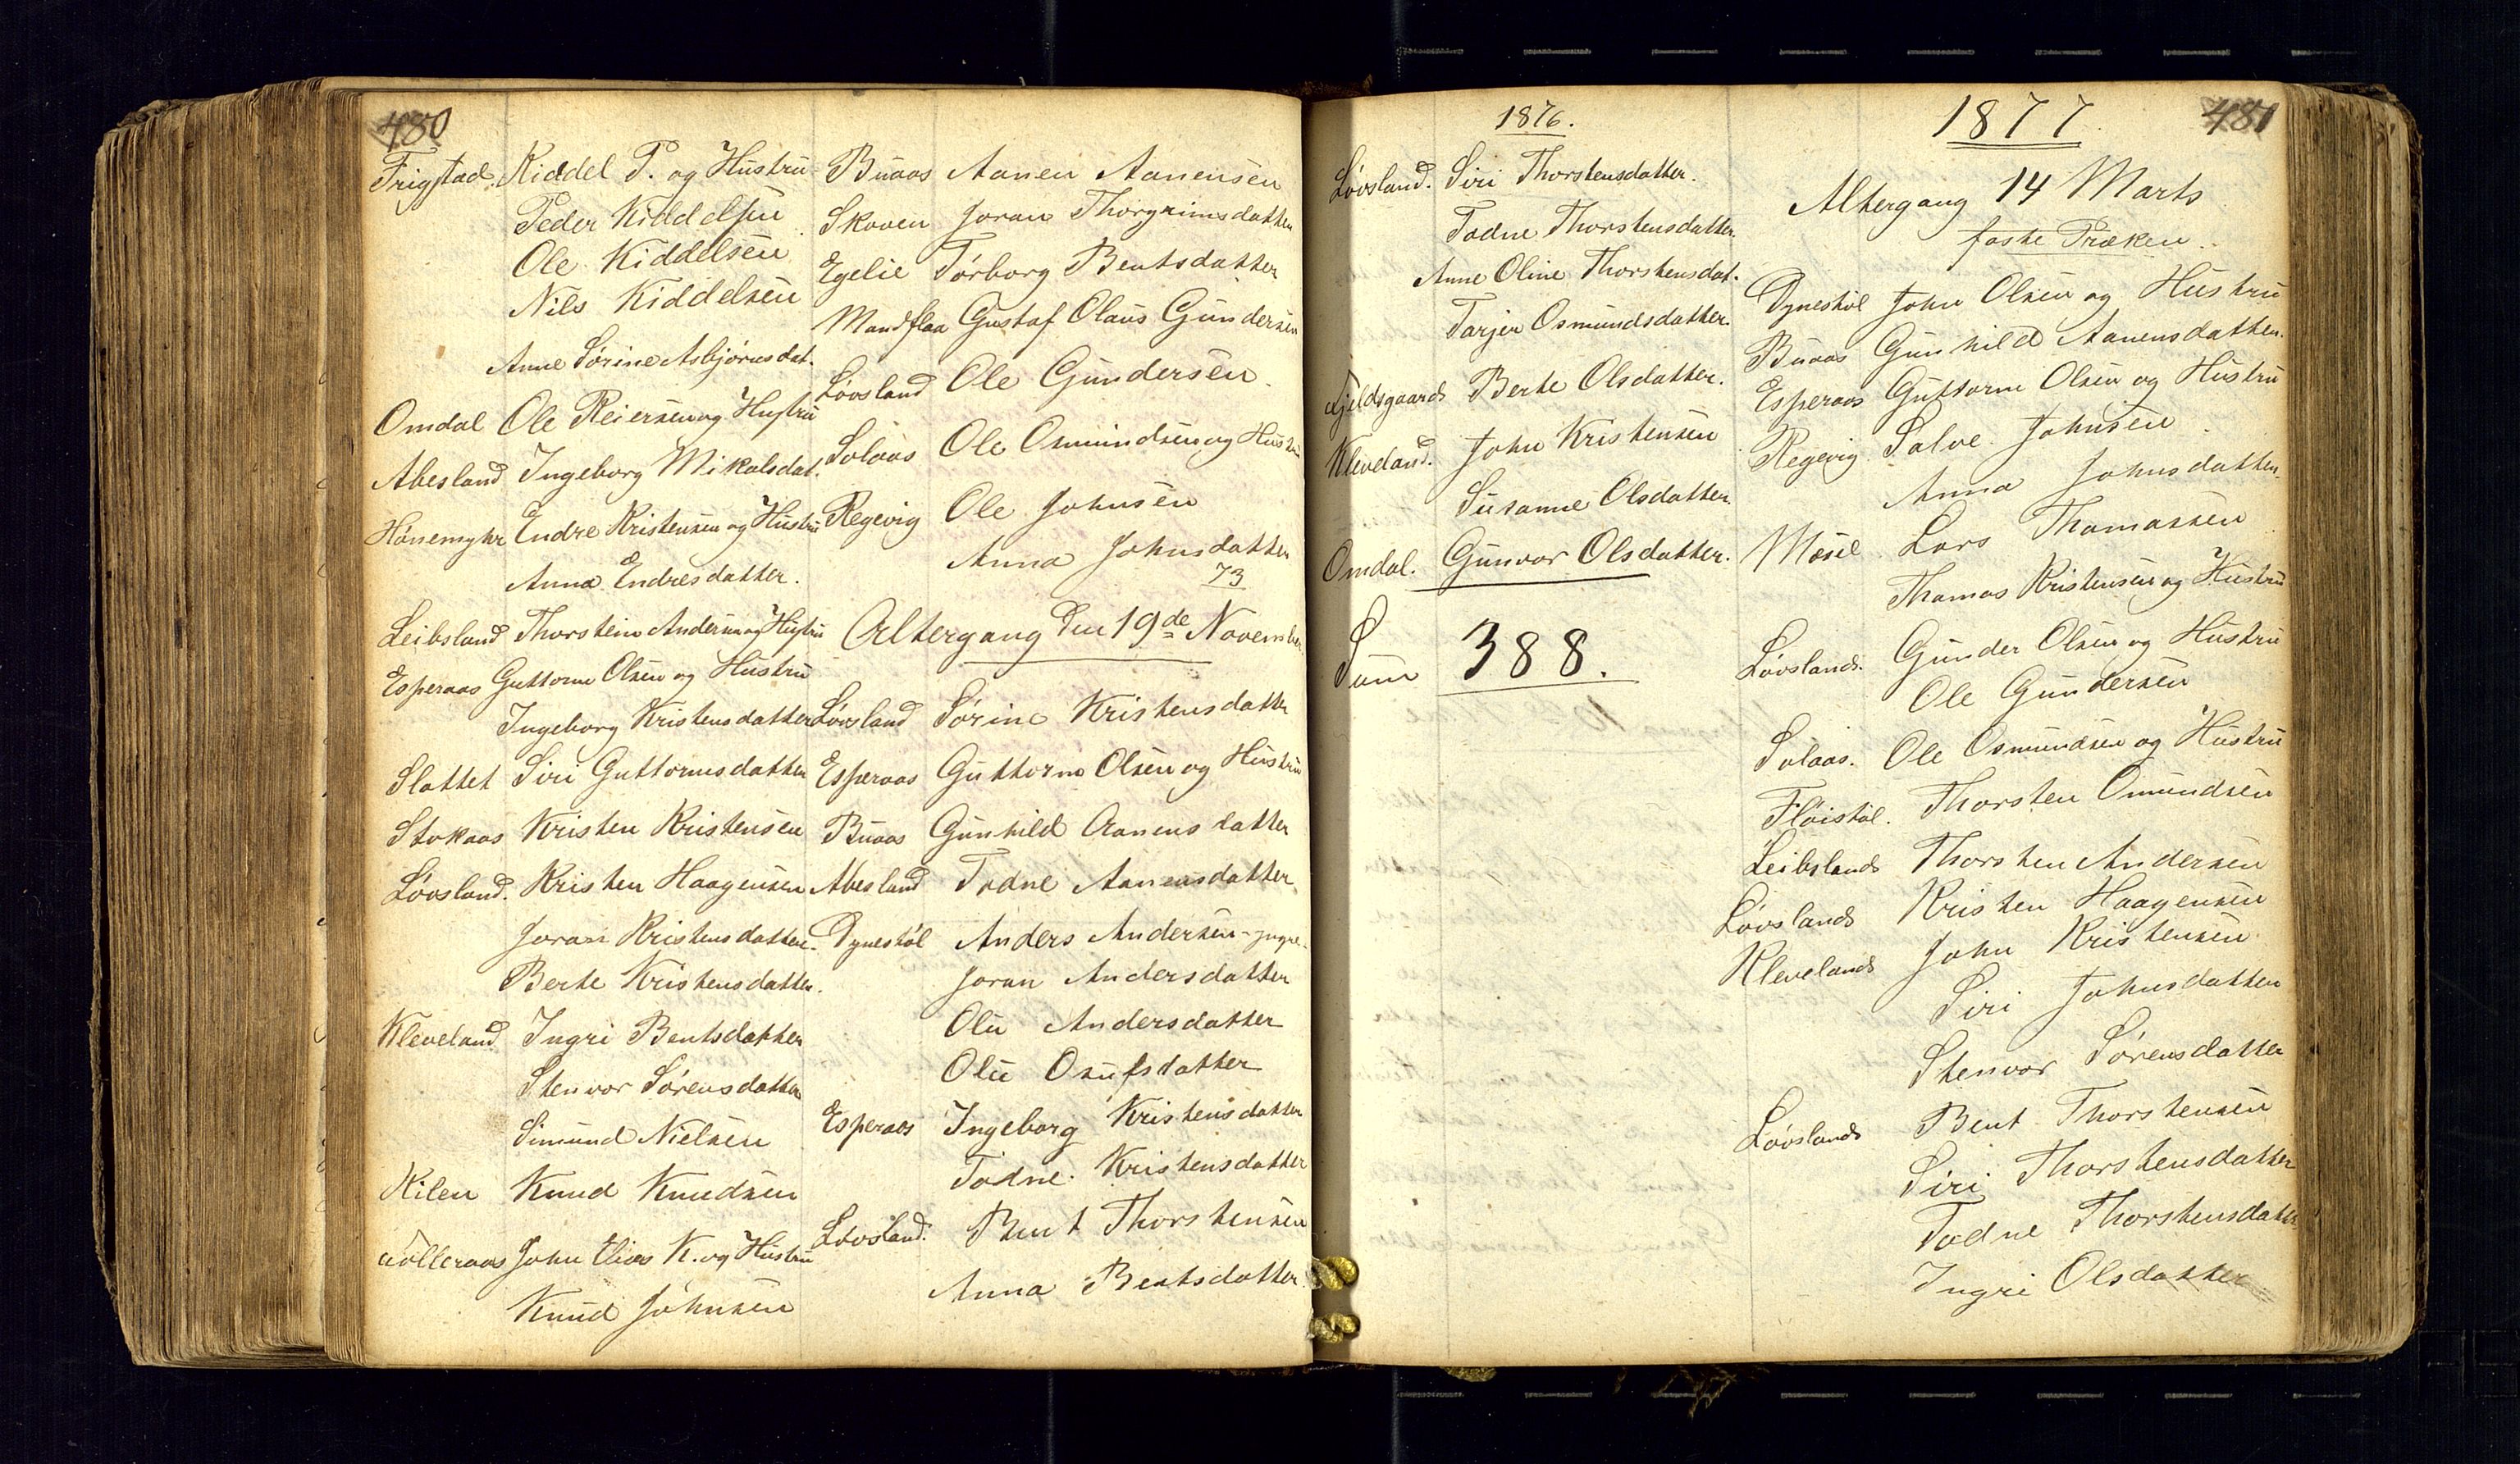 480
Frigstad. Kiddel P. og Hustru
Peder Kiddelsen
Ole Kiddelsen
Nils Kiddelsen
Anne Sørine Asbjørnsdat.
Omdal Ole Reiersen og Hustru
Abesland Ingeborg Mikalsdat.
Hønemyhr Endre Kristensen og Hustru
Anna Endresdatter.
Leibsland Thorstein Andersen og Hustru
Esperaas Guttorm Olsen og Hustru
Ingeborg Kristensdatter
Slottet Siri Guttormsdatter
Stokaas Kristen Kristensen
Løvsland. Kristen Haagensen
Joran Kristensdatter.
Berte Kristensdatter.
Kleveland Ingri Bentsdatter
Stenvor Sørensdatter
Simund Nielsen
Kilen Knud Knudsen
John Elias K. og Hustru
Knud Johnsen
Buaas Aanen Aanensen
Skoven Joran Thorgrimsdatter
Egelie Tørborg Bentsdatter
Mandflaa Gustaf Olaus Gundersen
Løvsland Ole Gundersen.
Solaas Ole Osmundsen og Hustru
Regevig Ole Johnsen
Anna Johnsdatter
73
Altergang den 19de November
Løvsland Sørine Kristensdatter
Esperaas Guttorm Olsen og Hustru
Buaas Gunhild Aanensdatter
Abesland Todne Aanensdatter
Dynestøl Anders Andersen - yngre -
Joran Andersdatter
Olu Andersdatter
Olu Osufsdatter
Esperaas Ingeborg Kristensdatter
Todne. Kristensdatter
Løvsland. Bent Thorstensen
Anna Bentsdatter
1876.
Løvsland. Siri Thorstensdatter.
Todne Thorstensdatter.
Anne Oline Thorstensdat.
Tarjer Osmundsdatter.
Fjeldsgaards Berte Olsdatter.
Kleveland. John Kristensen
Susanne Olsdatter.
Omdal. Gunvor Olsdatter.
Sum 388.
1877.
481
Altergang 14 Marts
faste Præken.
Dynestøl John Olsen og Hustru
Buaas Gunhild Aanensdatter.
Esperaas Guttorm Olsen og Hustru
Regevig Salve Johnsen
Anna Johnsdatter.
Mæsel Lars Thomassen
Thomas Kristensen og Hustru
Løvslands. Gunder Olsen og Hustru
Ole Gundersen
Solaas. Ole Osmundsen og Hustru
Fløistøl. Thorsten Omundsen
Leibslands Thorsten Andersen
Løvslands Kristen Haagensen
Klevelands John Kristensen
Siri Johnsdatter
Stenvor Sørensdatter
Løvslands Bent Thorstensen
Siri Thorstensdatter
Todne Thorstensdatter
Ingri Olsdatter